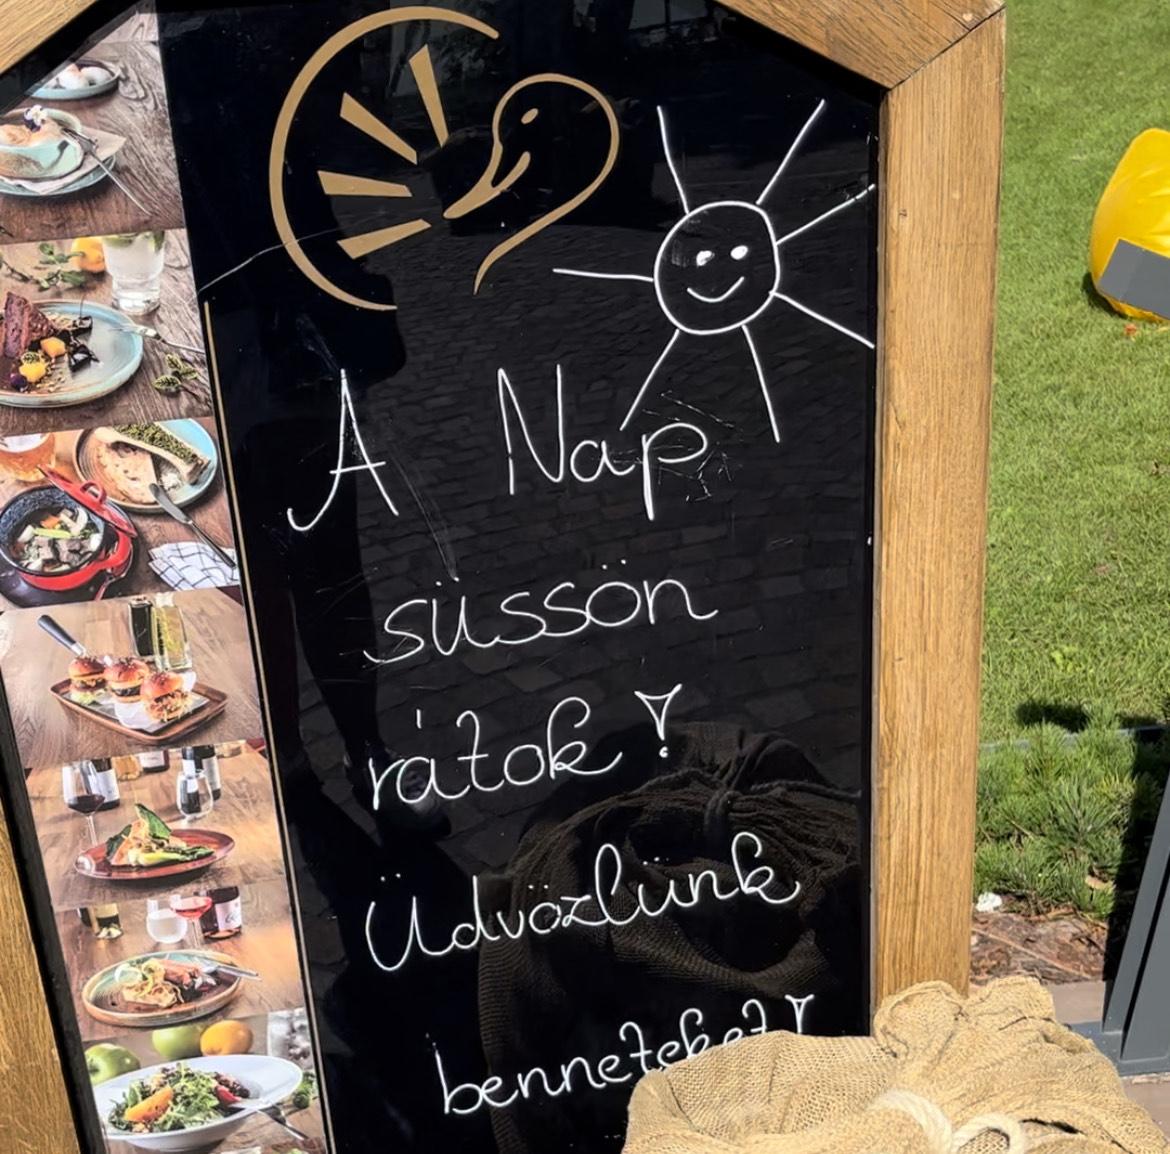 A Nap
süssön
rátok!
Üdvözlünk
benneteket!